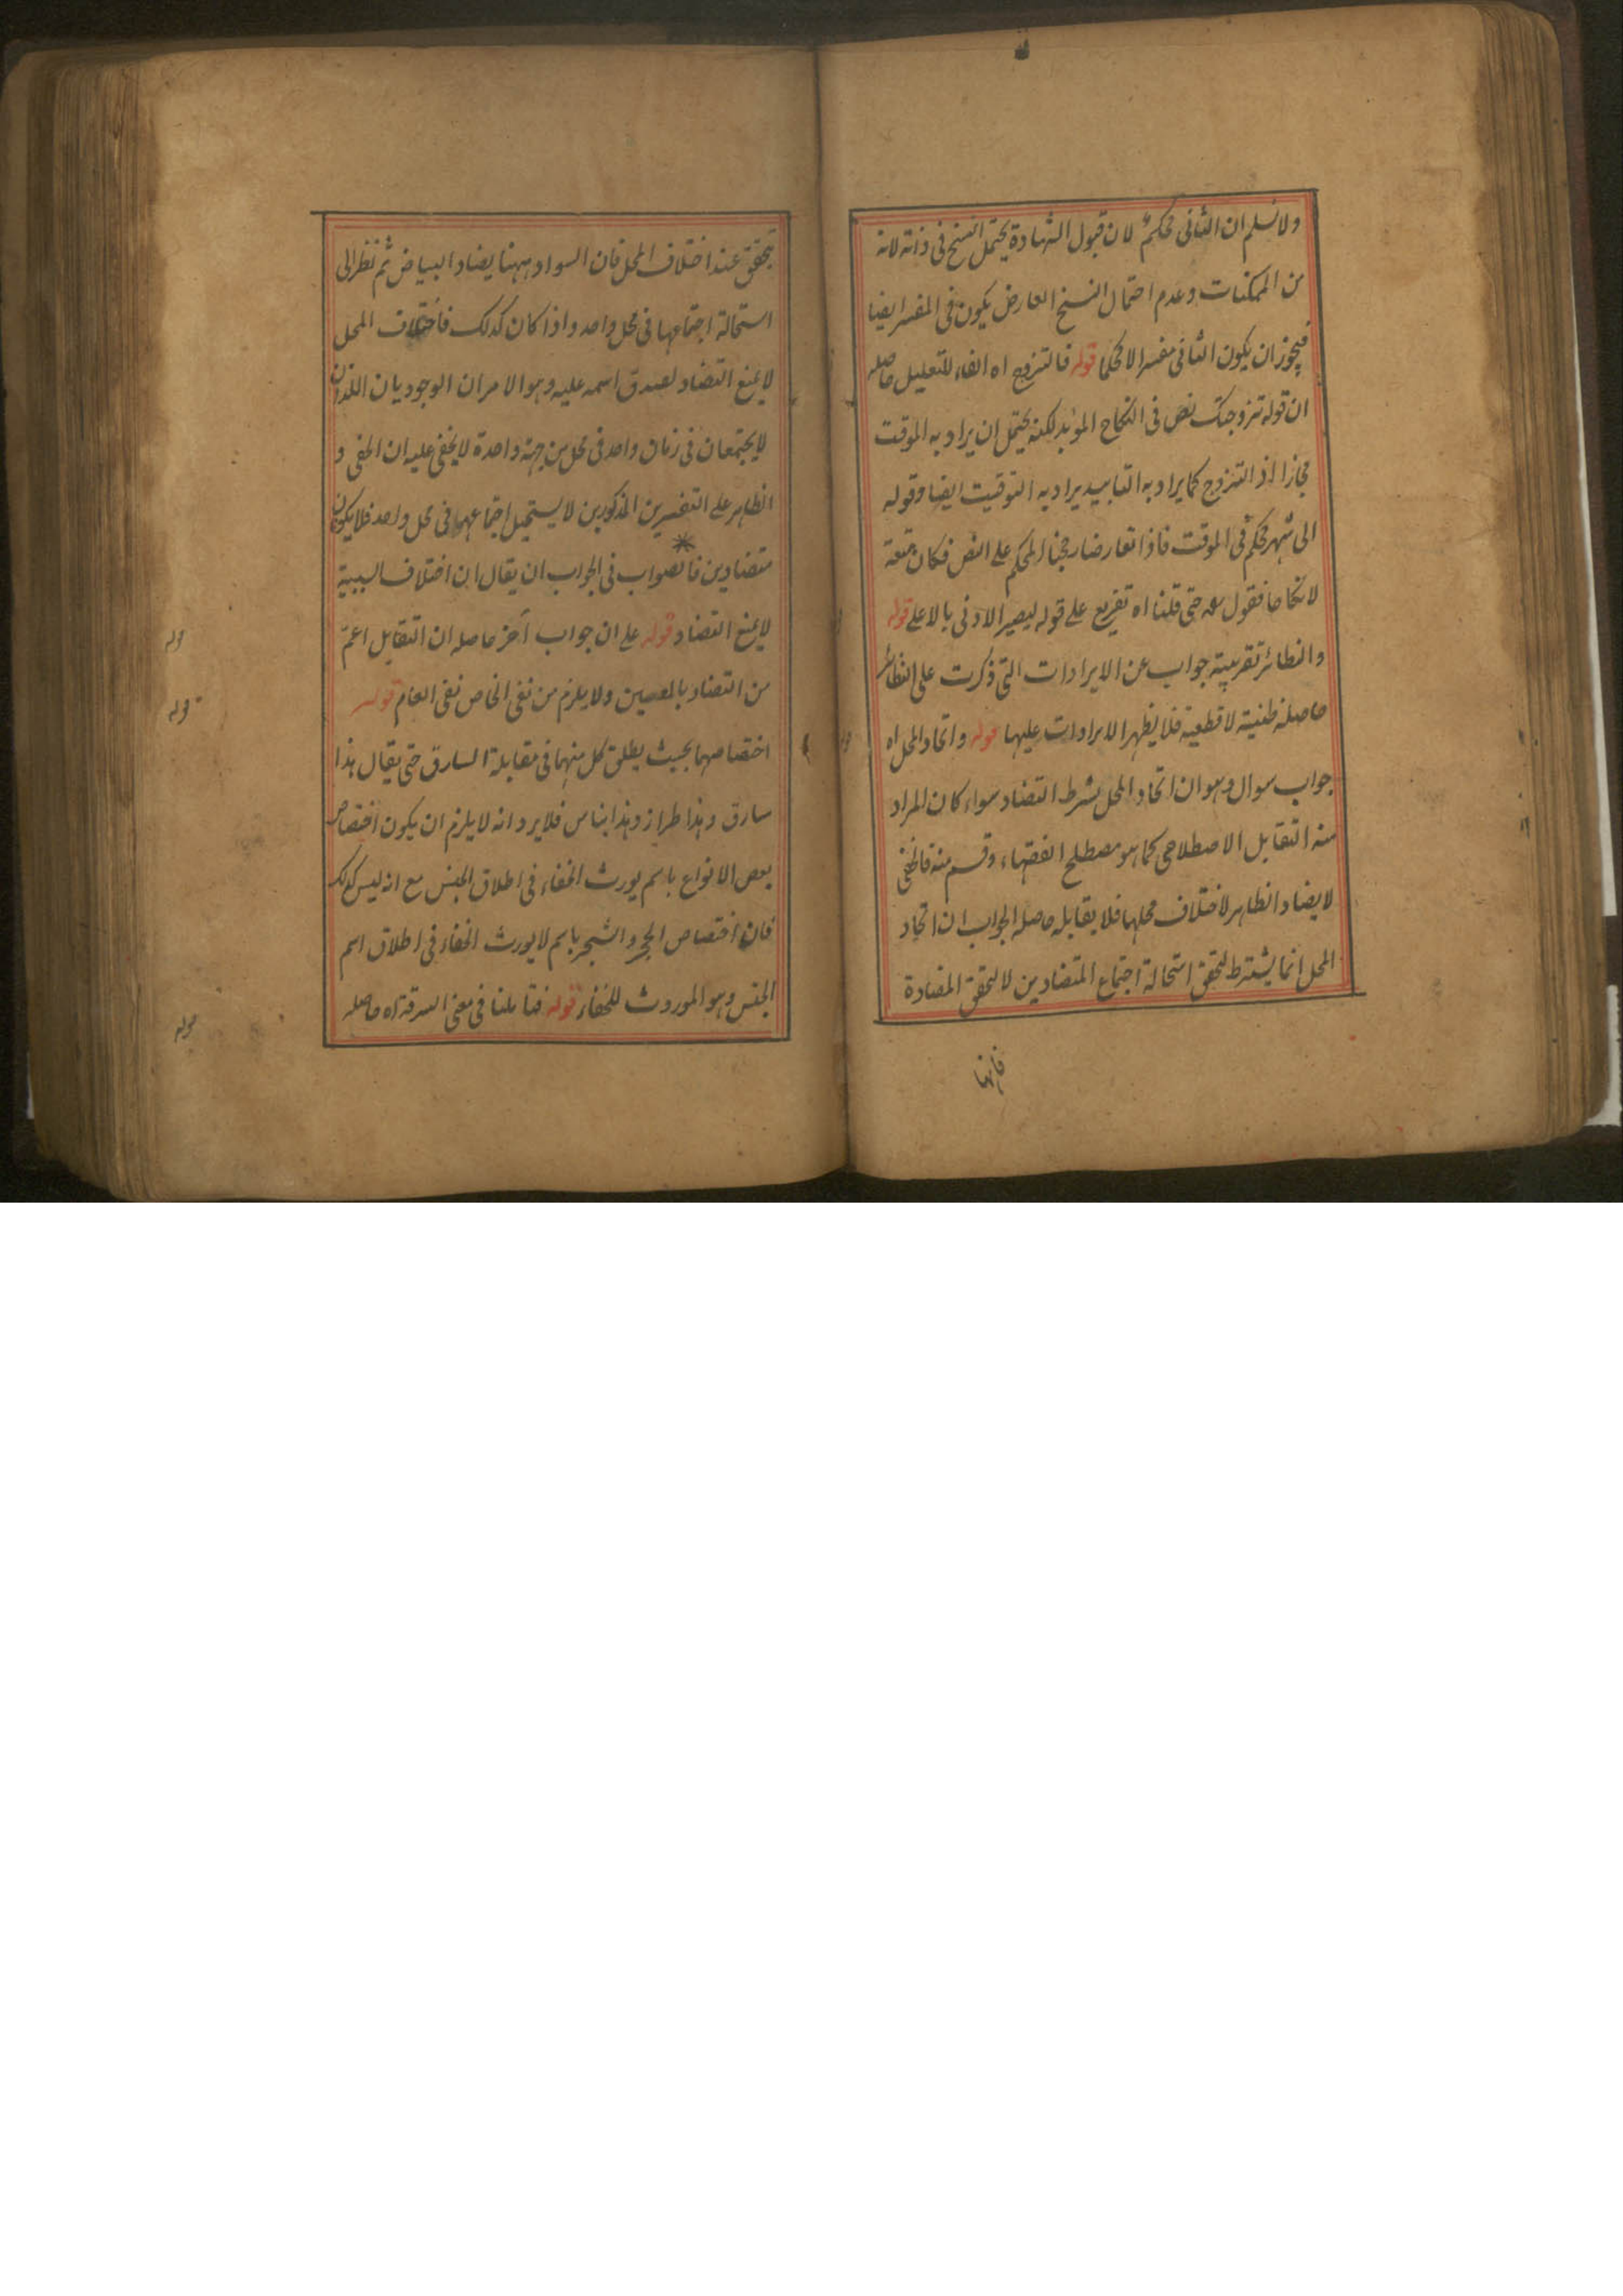 ولا نسلم ان الثانى محكم لان قبول الشهادة يحتمل النسخ فى ذاته لانه
من الممكنات وعدم احتمال النسخ العارض يكون فى المفسر ايضا
فيجوز ان يكون الثانى مفسرا لا محكما قوله فالتزوج اه الفاء للتعليل حاصله
ان قوله تزوجتك نص فى النكاح المؤبد لكنه يحتمل ان يراد به الموقت
مجازا اذ التزوج كما يراد به التابيد يراد به التوقيت ايضا وقوله
الى شهر محكم فى الموقت فاذا تعارضا رجحنا المحكم على النص فكان متعة
لا نكاحا فقول حتى قلنا اه تفريع على قوله ليصير الادنى بالاعلى قوله
والنظائر تقريبية جواب عن الايرادات التى ذكرت على النظائر
حاصله ظنية لا قطعية فلا يظهر الايرادات عليها قوله واتحاد المحل اه
جواب سوال وهو ان اتحاد المحل شرط التضاد سواء كان المراد
منه التقابل الاصطلاحى كما هو مصطلح الفقهاء وقسم منه فالخفى
لا يضاد الظاهر لاختلاف محلهما فلا يقابله حاصل الجواب ان اتحاد
المحل انما يشترط لتحقق استحالة اجتماع المتضادين لا لتحقق المضادة
فانها
تحقق عند اختلاف المحل فان السواد ههنا يضاد البياض ثم نظرا الى
استحالة اجتماعهما فى محل واحد واذا كان كذلك فاختلاف المحل
لا يمنع التضاد لصدق اسمه عليه وهو الامران الوجوديان اللذان
لا يجتمعان فى زمان واحد فى محل من جهة واحدة لا يخفى عليه ان الخفى و
الظاهر على التفسيرين المذكورين لا يستحيل اجتماعهما فى محل واحد فلا يكونان
متضادين فالصواب فى الجواب ان يقال ان اختلاف السببية
لا يمنع التضاد قوله على ان جواب آخر حاصله ان التقابل اعم
من التضاد بالمعنيين ولا يلزم من نفى الخاص نفى العام قوله
اختصاصهما بحيث يطلق كل منهما فى مقابلة السارق حتى يقال هذا
سارق وهذا طرار وهذا نباش فلا يرد انه لا يلزم ان يكون اختصاص
بعض الانواع باسم يورث الخفاء فى اطلاق الجنس مع انه ليس كذلك
فان اختصاص الحجر والشجر باسم لا يورث الخفاء فى اطلاق اسم
الجنس وهو المورث للخفاء قوله فتاملنا فى معنى السرقة اه حاصله
قوله
قوله
قوله